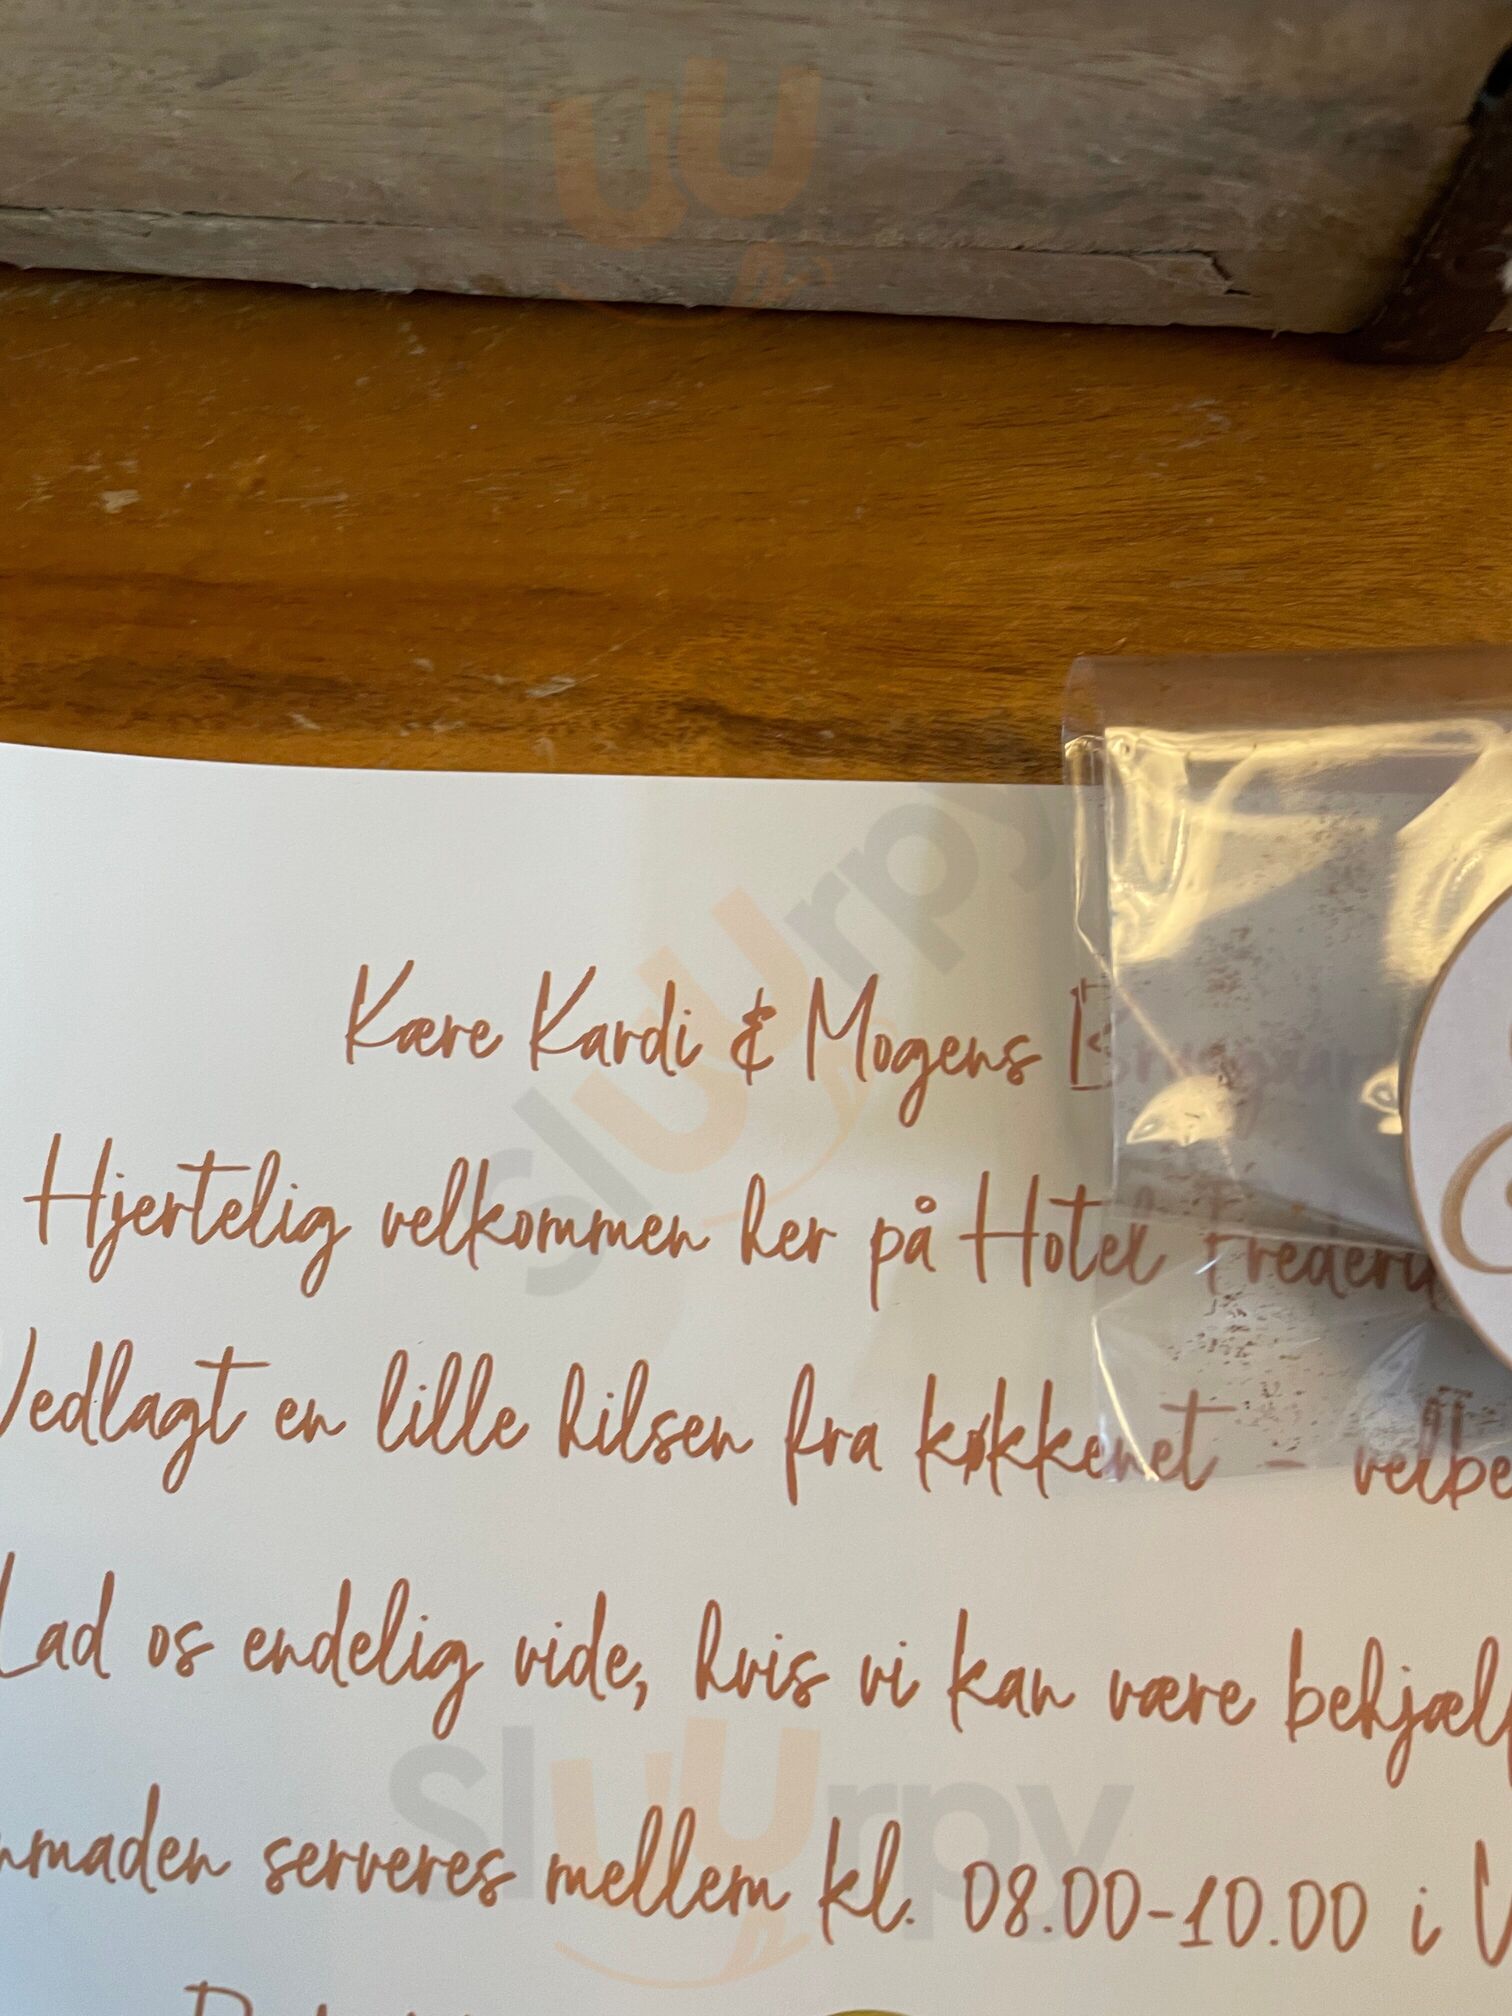 Kære Kardi & Mogens
Hjertelig velkommen her på Hotel
Vedlagt en lille hilsen fra køkkenet - velbe
Lad os endelig vide, hvis vi kan være behjælp
nmaden serveres mellem kl. 08.00-10.00 i V
sluurpy
sluurpy